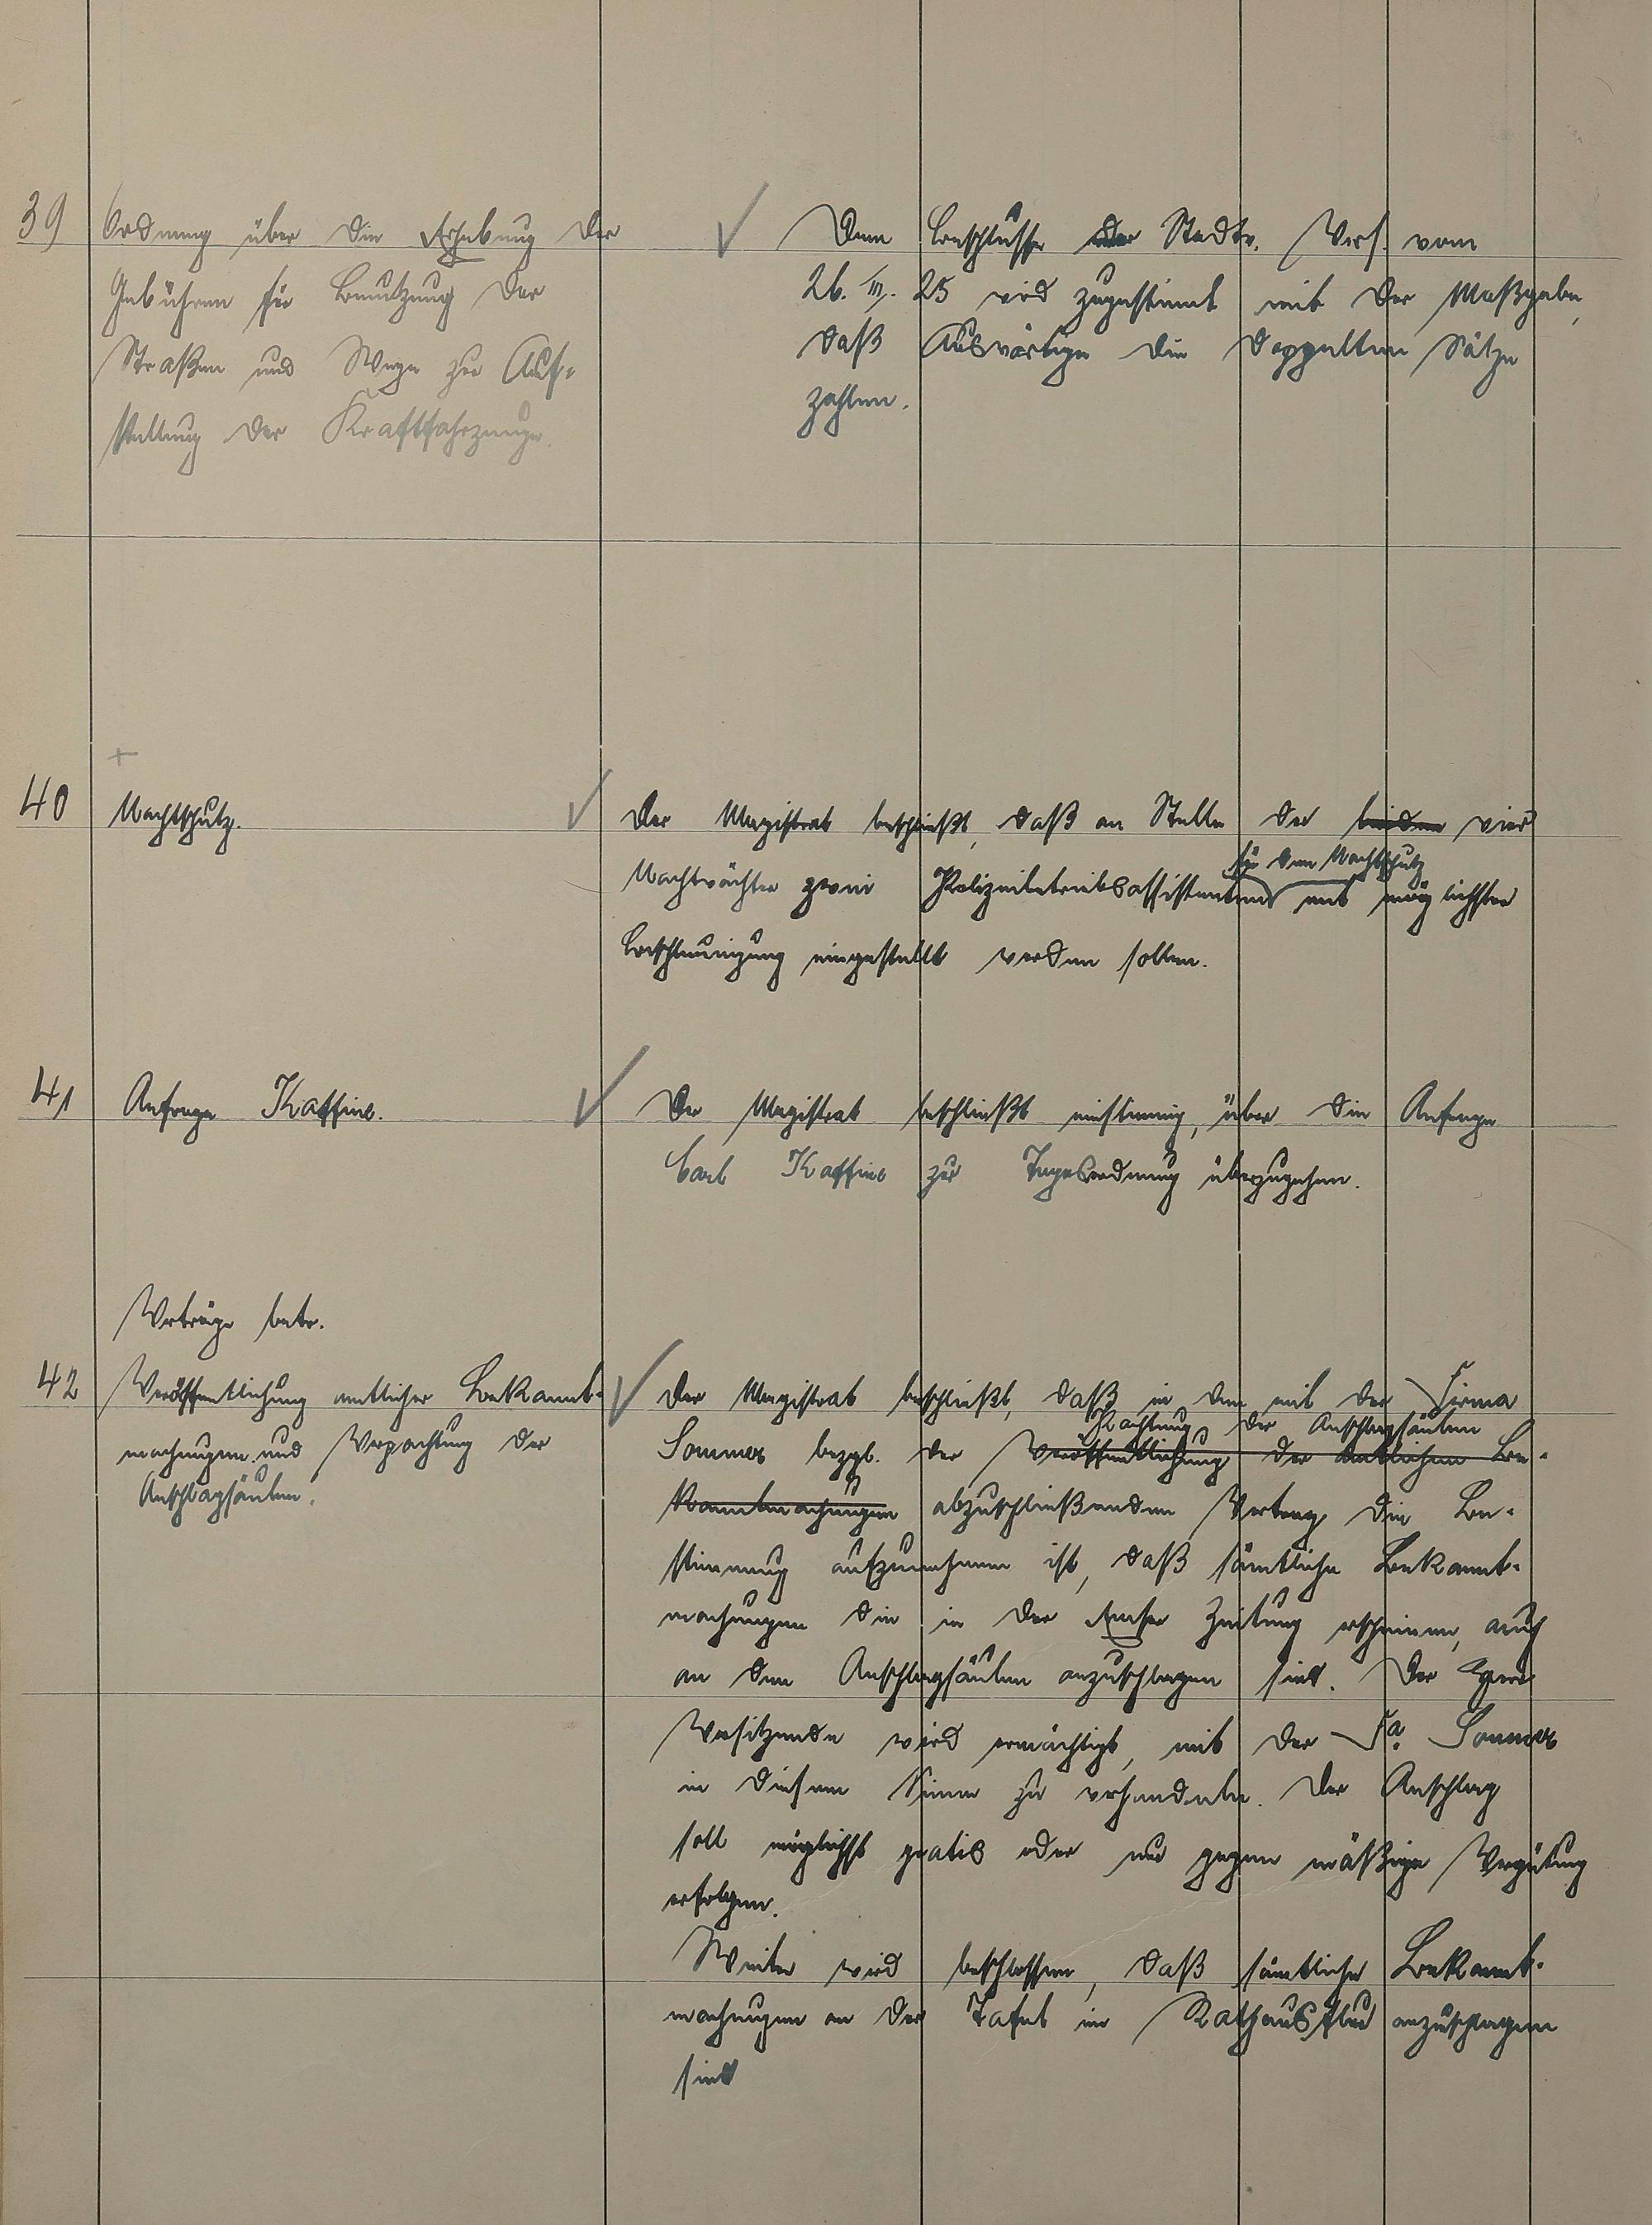 39
Ordnung über die Erhebung der
Gebühren für Benutzung der
Straßen und Wege zur Auf-
stellung der Kraftfahrzeuge.
Dem Beschlusse der Stadtv. Vers. vom
26. III. 25 wird zugestimmt mit der Maßgabe,
daß Auswärtige die doppelten Sätze
zahlen.
40
Nachtschutz.
Der Magistrat beschließt, daß an Stelle der beiden vier
für den Nachtschutz
Nachtwächter zwei Polizeibetriebsassistenten mit möglichster
Beschleunigung eingestellt werden sollen.
41
Anfrage Kaffine.
Der Magistrat beschließt einstimmig, über die Anfrage
Carl Kaffine zur Tagesordnung überzugehen.
Verträge betr.
42
Veröffentlichung amtlicher Bekannt-
machungen und Verpachtung der
Anschlagsäulen.
Der Magistrat beschließt, daß in dem mit der Firma
Pachtung der Anschlagsäulen
Sommer bezgl. der Veröffentlichung der amtlichen Be-
kanntmachungen abzuschließenden Vertrag die Be-
stimmung aufzunehmen ist, daß sämtliche Bekannt-
machungen die in der Emser Zeitung erscheinen, auch
an den Anschlagsäulen anzuschlagen sind. Der Herr
Vorsitzende wird ermächtigt, mit der Fa. Sommer
in diesem Sinne zu verhandeln. Der Anschlag
soll möglichst gratis oder nur gegen mäßige Vergütung
erfolgen.
Weiter wird beschlossen, daß sämtliche Bekannt-
machungen an der Tafel im Rathausflur anzuschlagen
sind